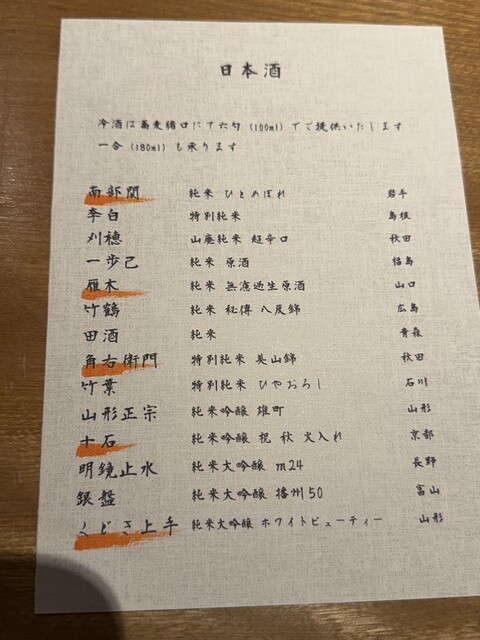 日本酒
冷酒は蕎麦猪口にて六勺(100ml)でご提供いたします
一合(180ml)も承ります
南部関 純米 ひとめぼれ 岩手
李白 特別純米 島根
刈穂 山廃純米 超辛口 秋田
一歩己 純米 原酒 福島
雁木 純米 無濾過生原酒 山口
竹鶴 純米 秘傳 八反錦 広島
田酒 純米 青森
角右衛門 特別純米 美山錦 秋田
竹葉 特別純米 ひやおろし 石川
山形正宗 純米吟醸 雄町 山形
十石 純米吟醸 祝 秋 火入れ 京都
明鏡止水 純米大吟醸 m24 長野
銀盤 純米大吟醸 播州50 富山
くどき上手 純米大吟醸 ホワイトビューティー 山形